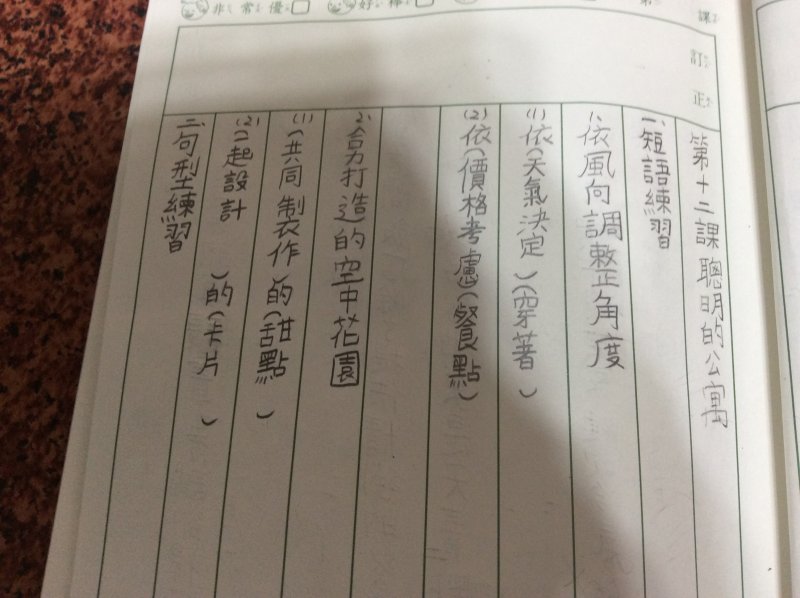 非常優 好棒 第
課
訂正
第十二課聰明的公寓
一、短語練習
1、依風向調整角度
(1)依(天氣決定)(穿著)
(2)依(價格考慮)(餐點)
2、合力打造的空中花園
(1)(共同製作)的(甜點)
(2)(一起設計)的(卡片)
二、句型練習